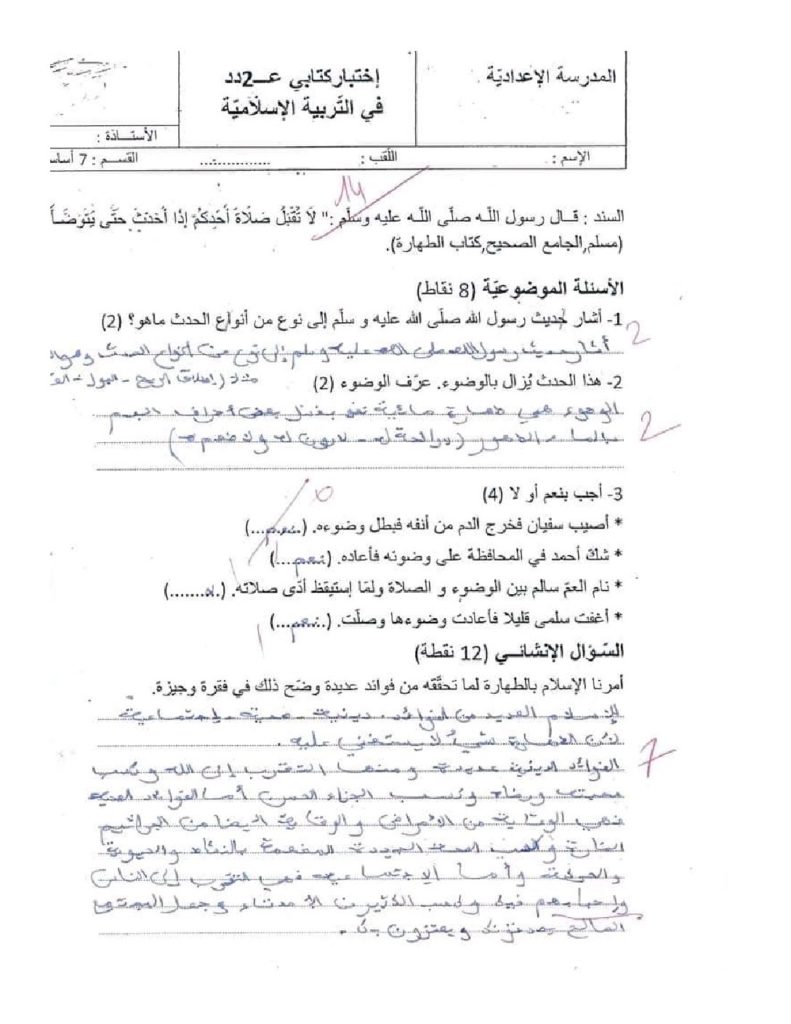 المدرسة الإعداديّة
إختبار كتابي عــ2دد
في التّربية الإسلاميّة
الأستــاذة :
الإسم : اللّقب : ................ القســم : 7 أساس
14
السند : قــال رسول اللّه صلّى اللّه عليه وسلّم :" لَا تُقْبَلُ صَلَاةُ أَحَدِكُمْ إِذَا أَحْدَثَ حَتَّى يَتَوَضَّأَ
(مسلم,الجامع الصحيح,كتاب الطهارة).
الأسئلة الموضوعيّة (8 نقاط)
1- أشار حديث رسول الله صلّى الله عليه و سلّم إلى نوع من أنواع الحدث ماهو؟ (2)
2
أشار حديث رسول الله صلى الله عليه وسلم إلى نوع من أنواع الحدث وهو
مثلا (إطلاق الريح - البول -
2- هذا الحدث يُزال بالوضوء. عرّف الوضوء (2)
الوضوء هي طهارة مائية بغسل بعض أطراف الجسم
بالماء الطهور ( لا رائحة له - لا لون له ولا طعم له )
2
3- أجب بنعم أو لا (4)
* أصيب سفيان فخرج الدم من أنفه فبطل وضوءه. (..نعم...)
0
* شكّ أحمد في المحافظة على وضوئه فأعاده. (نعم....)
1
* نام العمّ سالم بين الوضوء و الصلاة ولمّا إستيقظ أدّى صلاته. (.لا.......)
1
* أغفت سلمى قليلا فأعادت وضوءها وصلّت. (..نعم...)
1
السّؤال الإنشائــي (12 نقطة)
أمرنا الإسلام بالطهارة لما تحقّقه من فوائد عديدة وضّح ذلك في فقرة وجيزة.
للإسلام العديد من الفوائد . دينية - صحية - إجتماعية
لأن الطهارة شيء لا يستغنى عليه .
7
الفوائد الدينية عديدة ومنها التقرب إلى الله وكسب
محبته ورضاه وكسب الجزاء الحسن أما الفوائد الصحية
فهي الوقاية من الأمراض والوقاية أيضا من الجراثيم
الضارة وكسب الصحة الجيدة المفعمة بالنشاط والحيوية
والحركة وأما الإجتماعية فهي التقرب إلى الناس
وإحبابهم فيك وكسب الكثير من الأصدقاء وجعل المجتمع
الصالح يحترمونك ويعتزون بك .